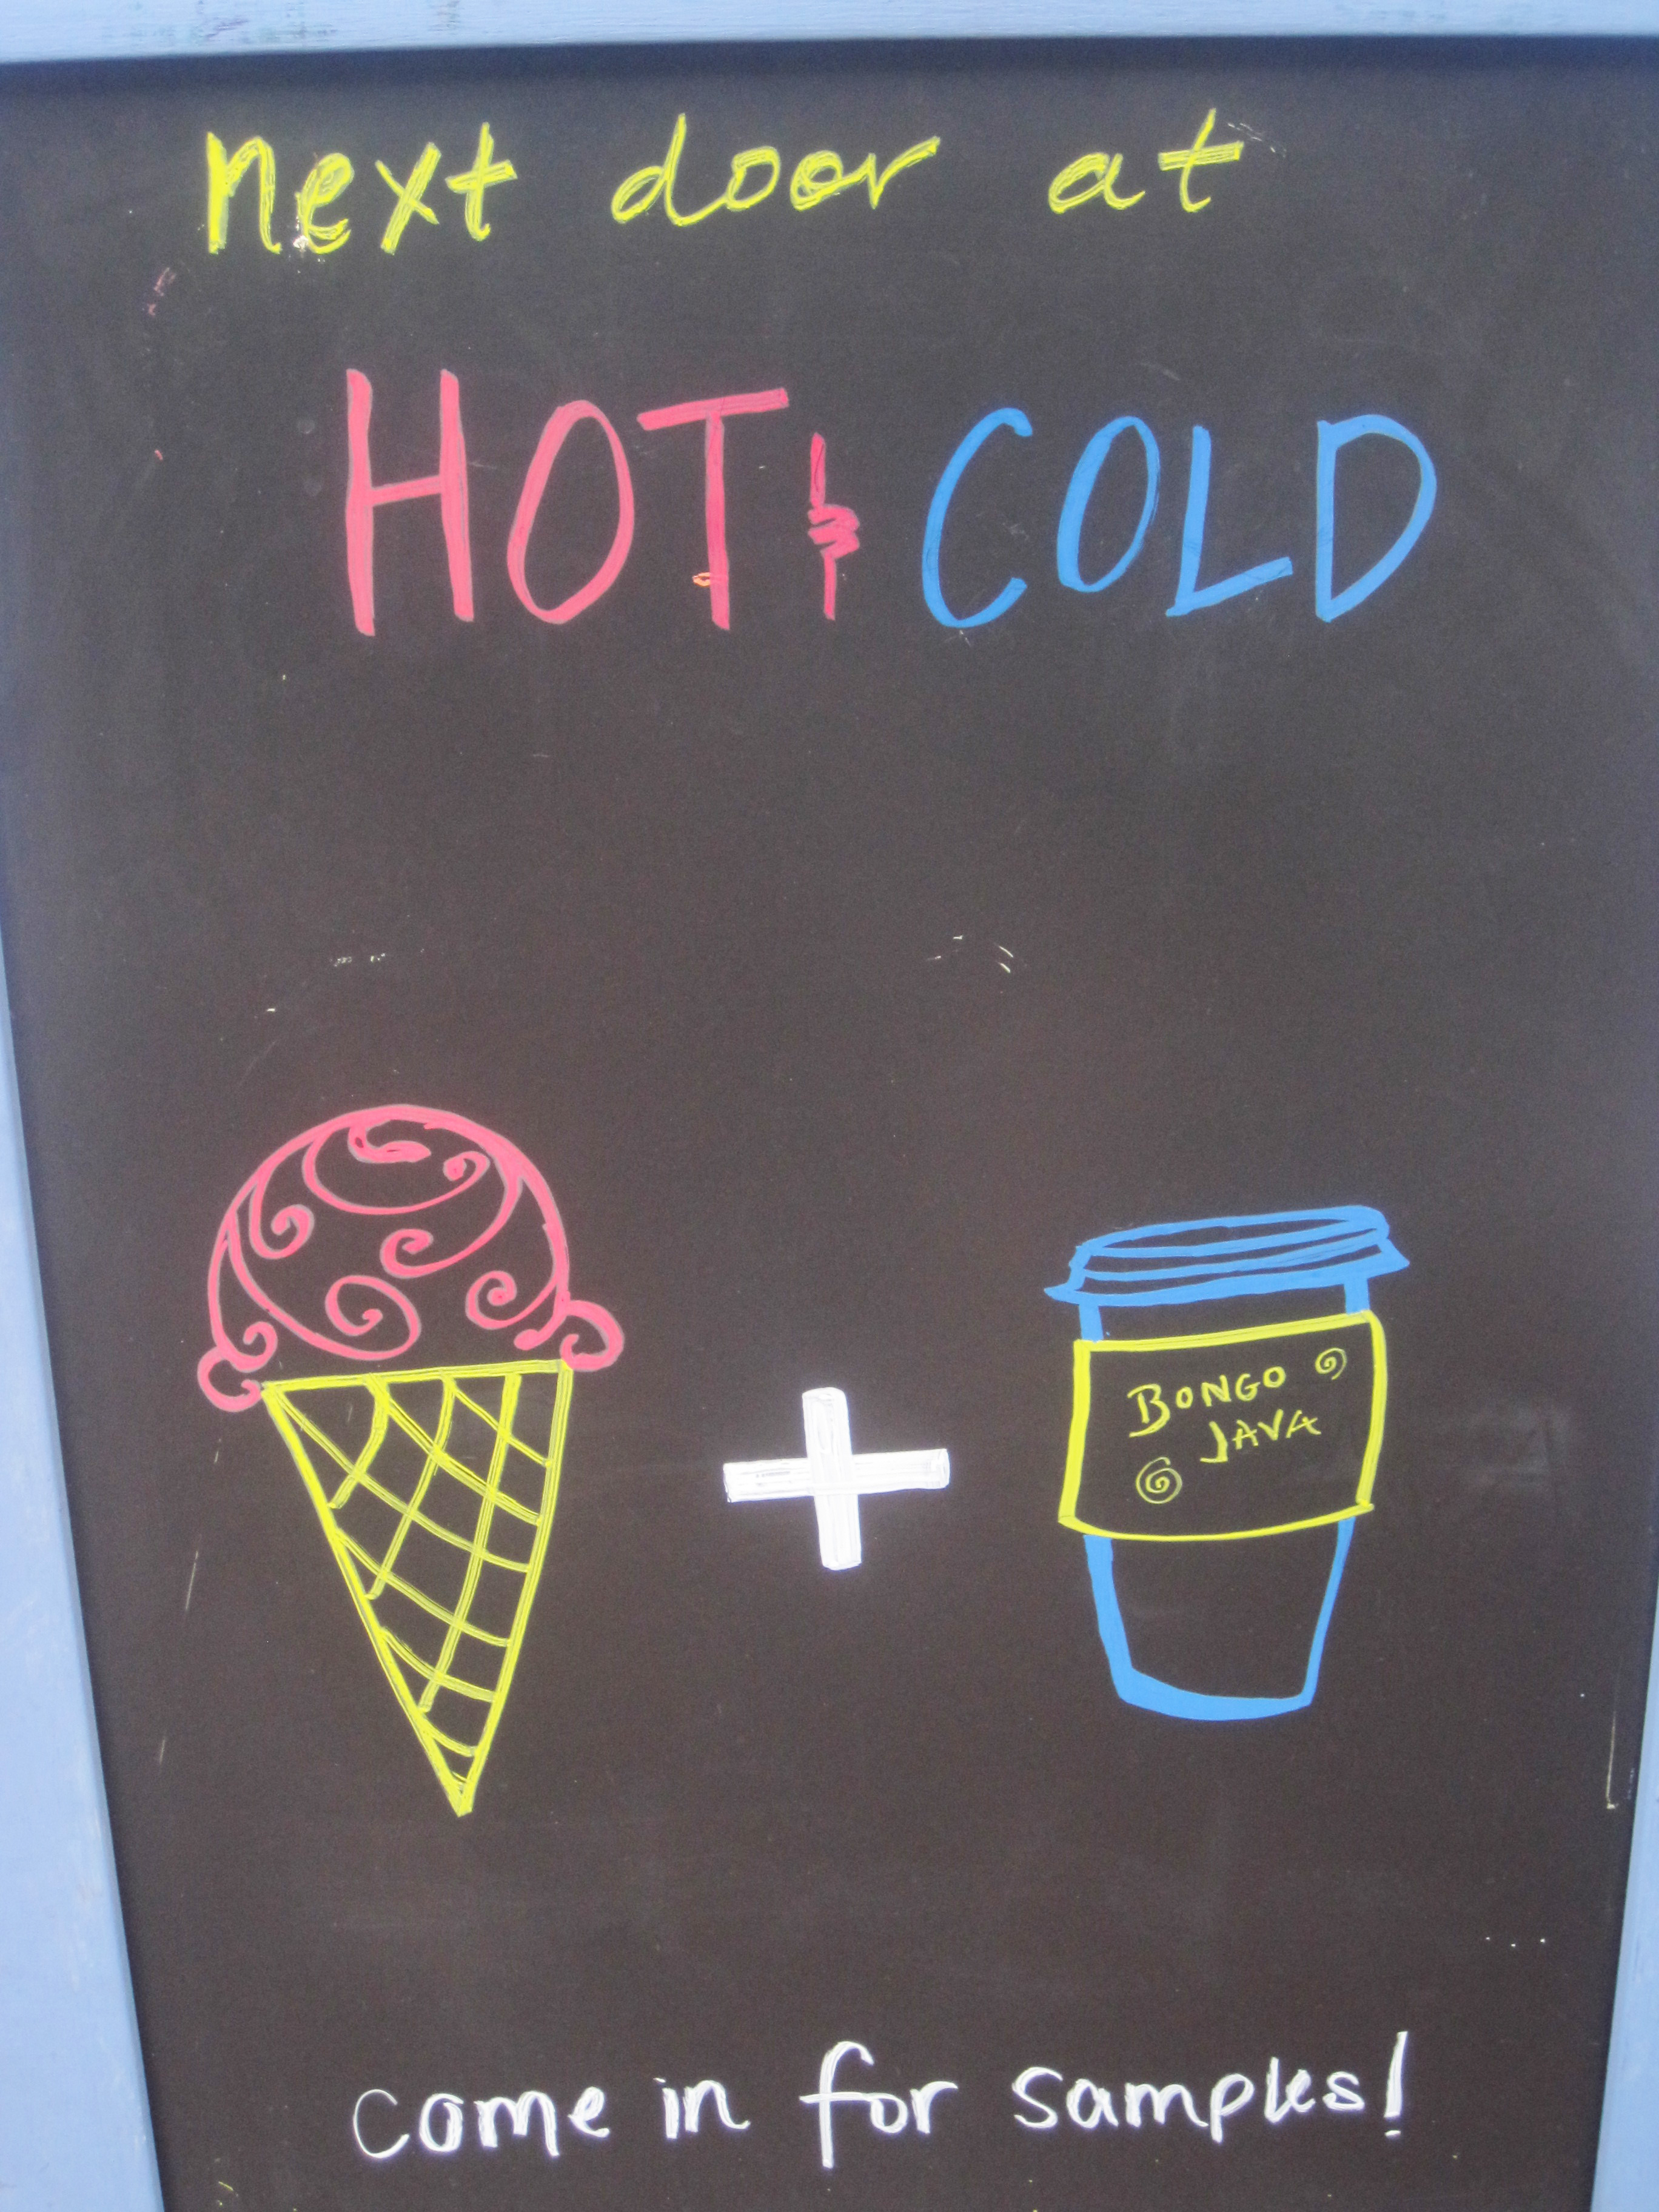 next door at
HOT & COLD
BONGO
JAVA
come in for samples!